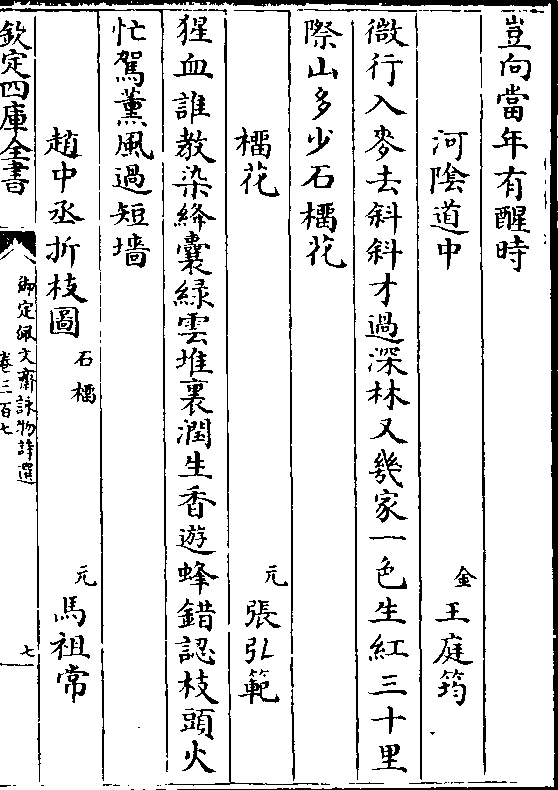 豈向當年有醒時
河陰道中　金　王庭筠
微行入麥去斜斜才過深林又幾家一色生紅三十里
際山多少石橊花
橊花　元　張弘範
猩血誰教染絳囊綠雲堆裏潤生香遊蜂錯認枝頭火
忙駕薰風過短墻
趙中丞折枝圖　石橊　元　馬祖常
欽定四庫全書
御定佩文齋詠物詩選
卷三百七
七